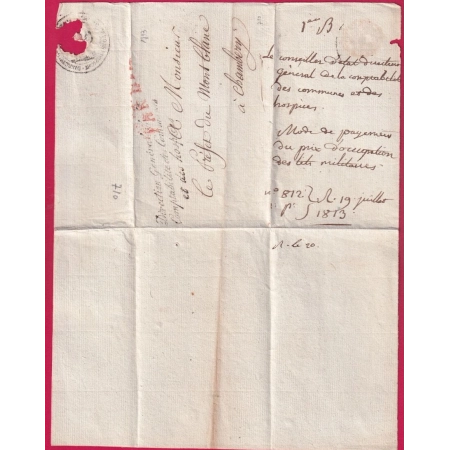 1er B.
Le conseiller d'état directeur
général de la comptabilité
des communes et des
hospices.
Mode de payement
du prix d'occupation
des lits militaires.
n° 812 } R. 19 juillet
1813
R. le 20.
Direction Générale
Comptabilité des Communes
et des hospices
A Monsieur
Le Préfet du Mont Blanc
à Chambéry